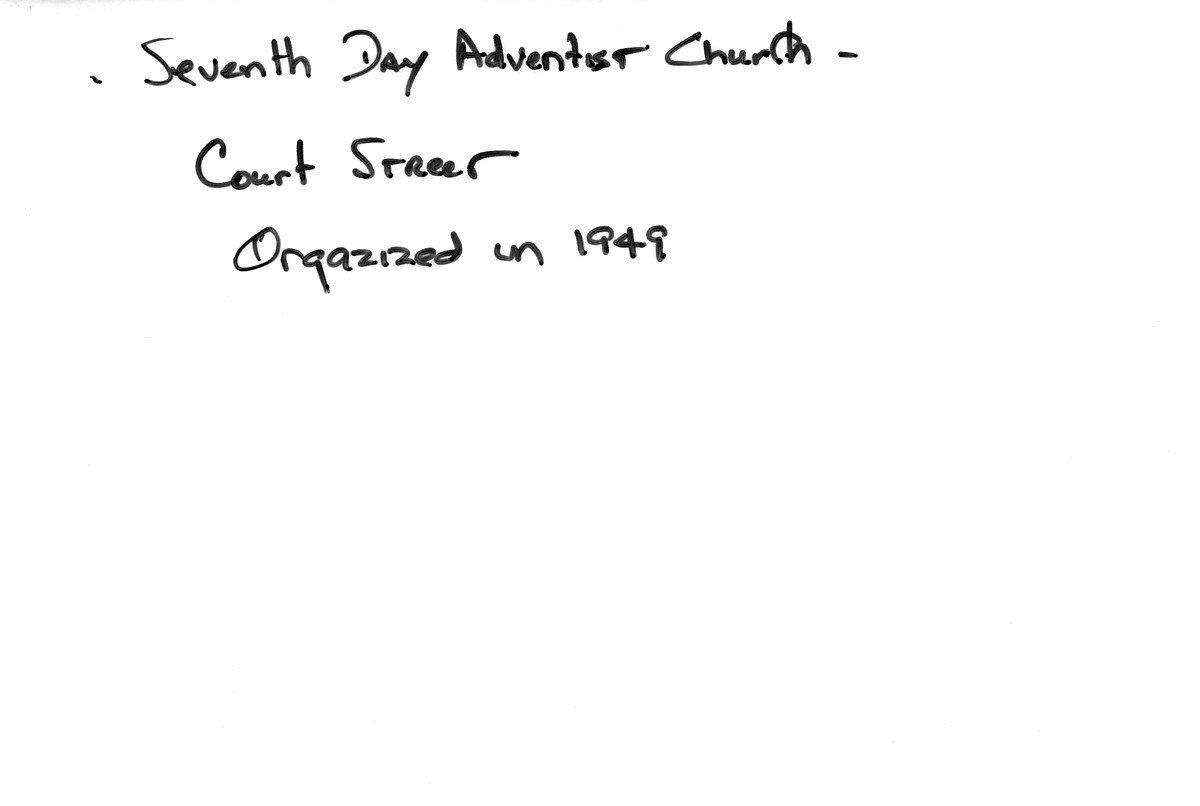 . Seventh Day Adventist Church -
Court Street
Orgazized in 1949